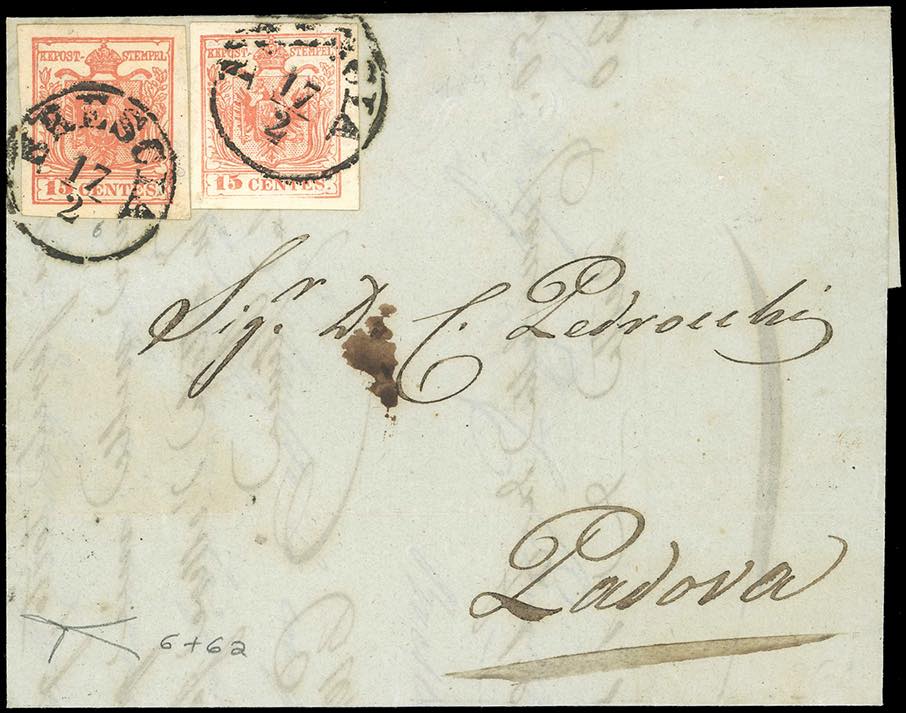 KKPOST-STEMPEL
15 CENTES.
BRESCIA
17/2
KKPOST-STEMPEL
15 CENTES.
BRESCIA
17/2
6
Sigr. D. C. Pedrocchi
Padova
6+62